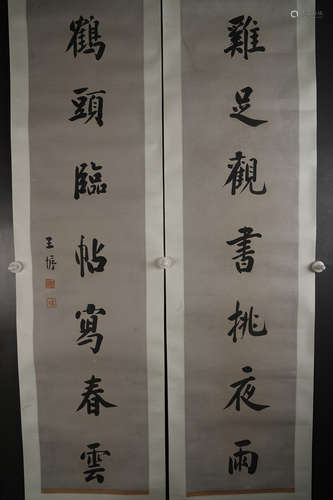 雞足觀書挑夜雨
鶴頭臨帖寫春雲